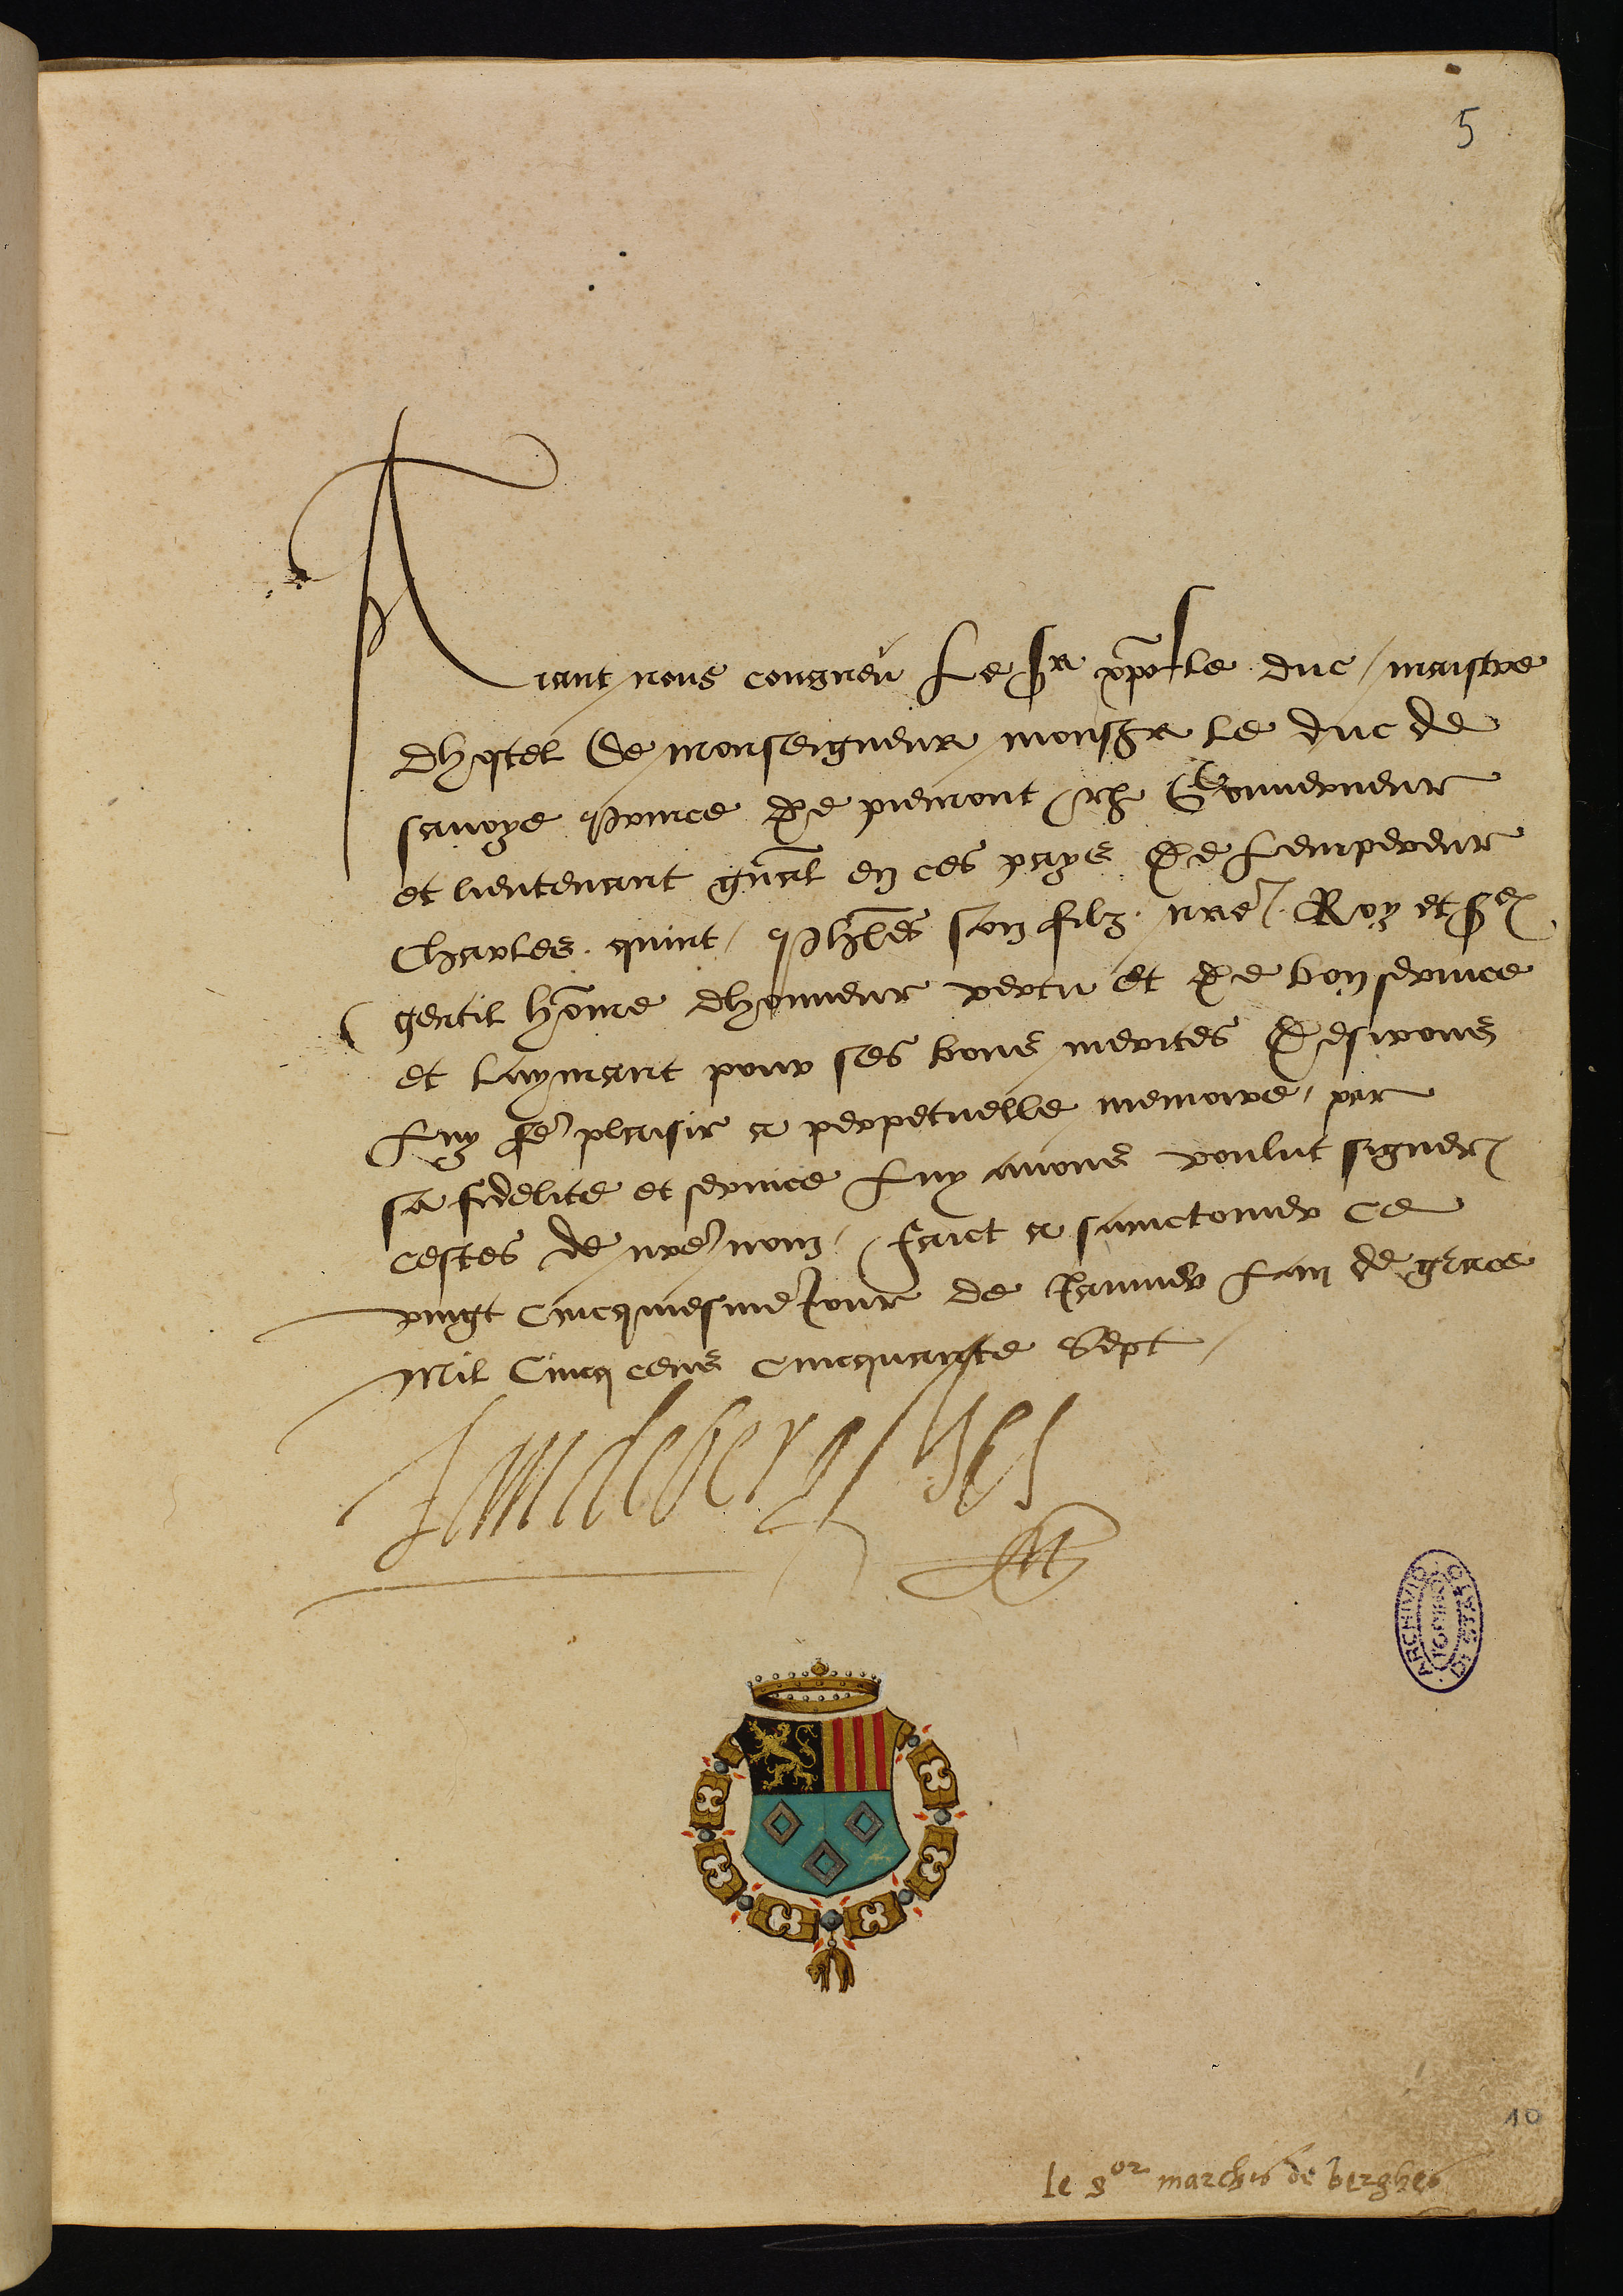 5
Aiant nous congneu Le Sr xpofle duc / maistre
dhostel de monseigneur monsgr le duc de
sauoye prince de piemont Gouuerneur
et lieutenant gnãl en ces pays de Lempereur
Charles quint / Phles son filz nre Roy et Sr
gentil hõme dhonneur vertu et de bon seruice
et laymant pour ses bons merites desirons
Luy fe plaisir a perpetuelle memoire / par
sa fidelite et seruice Luy auons voulut signer
cestes de nre nom / faict a sainctomer ce
vingt Cincquiesme Jour de Januier Lan de grace
Mil Cincq cens cincquante Sept /
Jan de berghes
ARCHIVIO DI STATO TORINO
10
le sor marchis de berghes